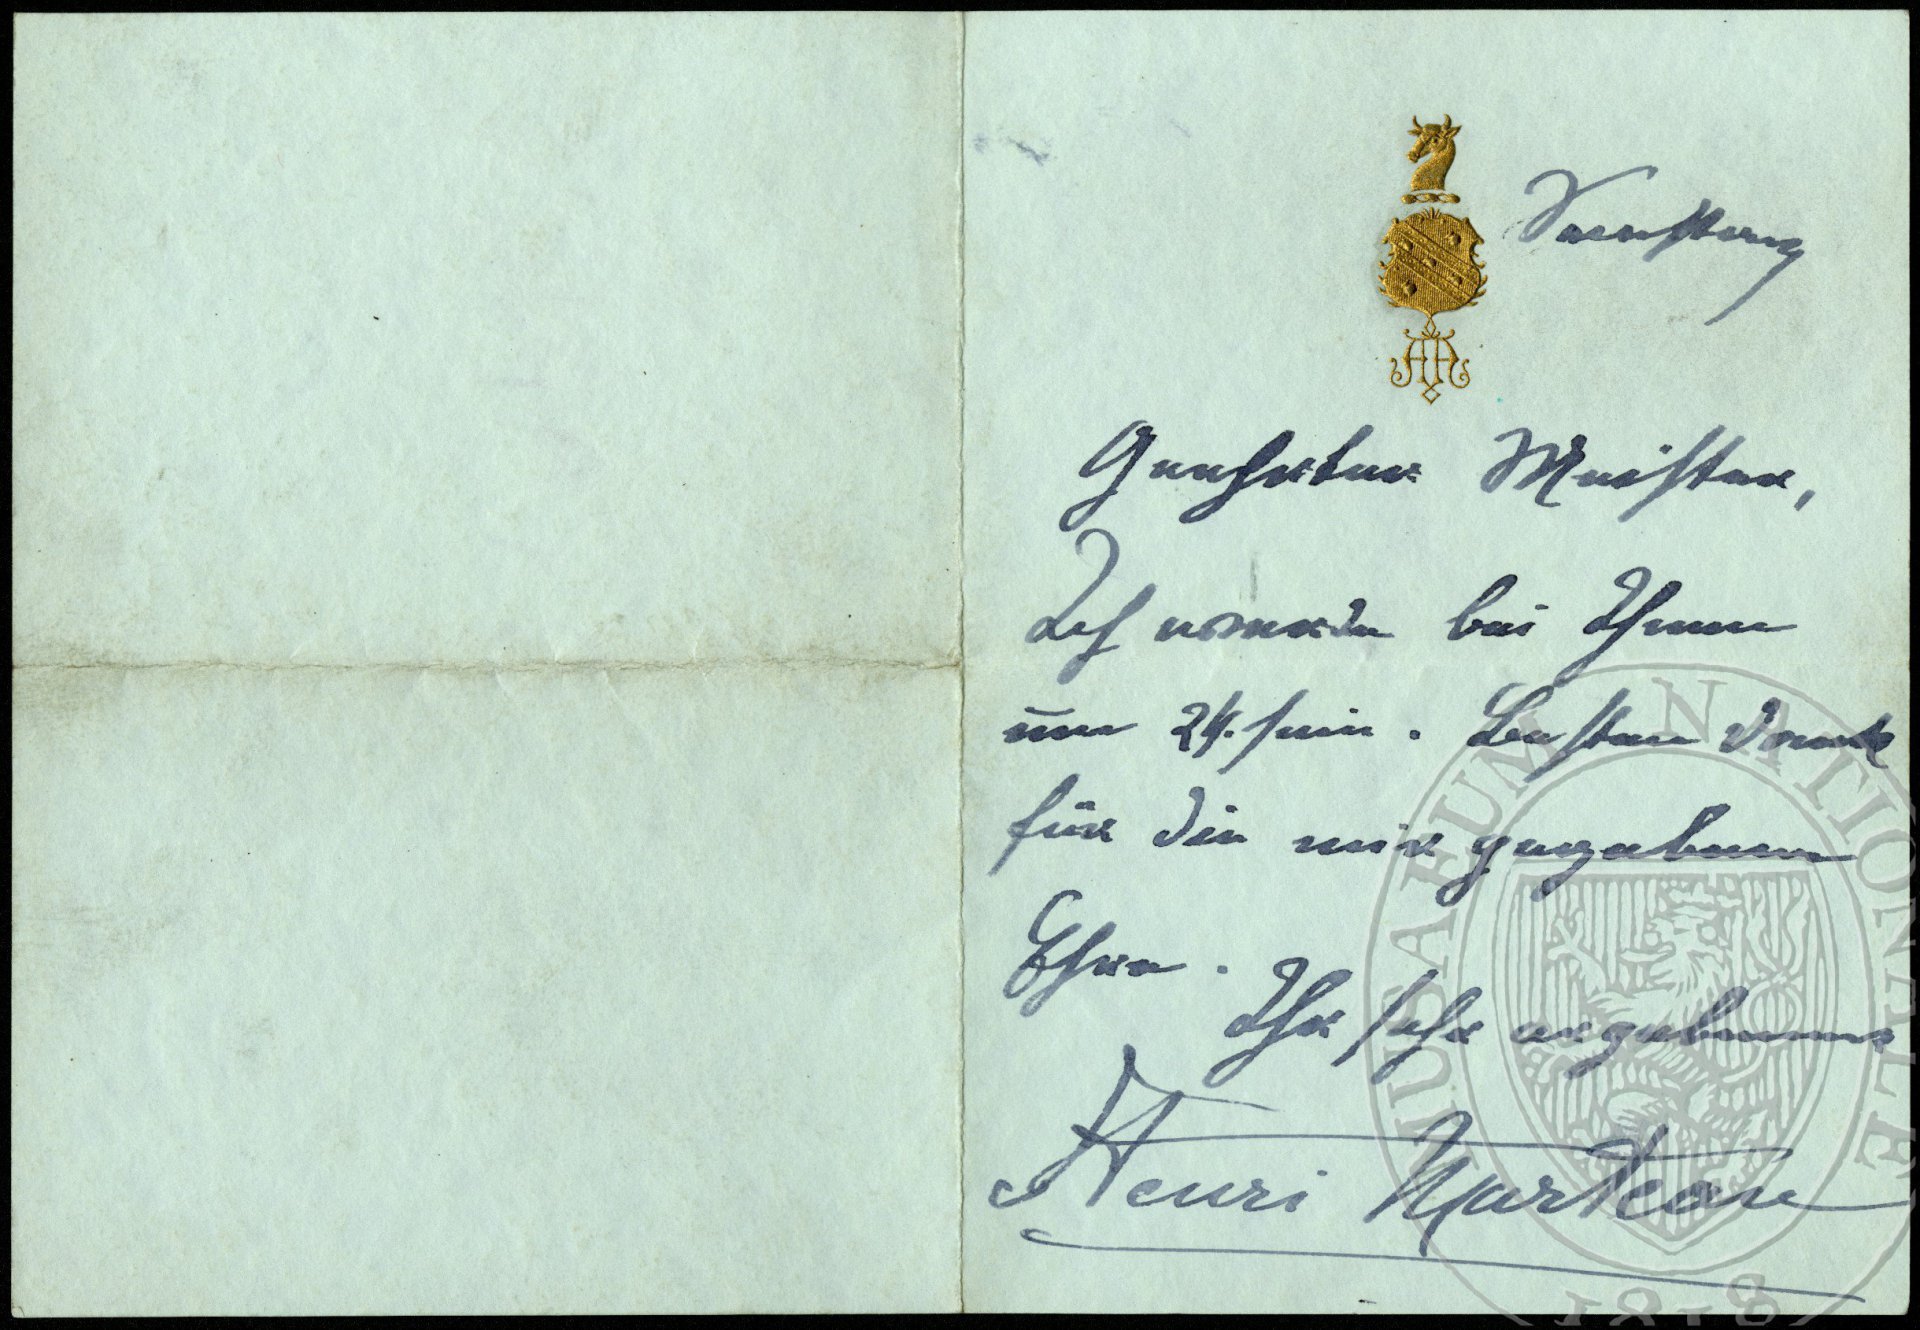 Geehrter Meister,
Ich werde bei Ihnen
um sein. Besten Dank
für die mir gegebene
Ehre.
Ihr sehr ergebener
Henri Marteau
MUSAEUM NATIONALE
1818